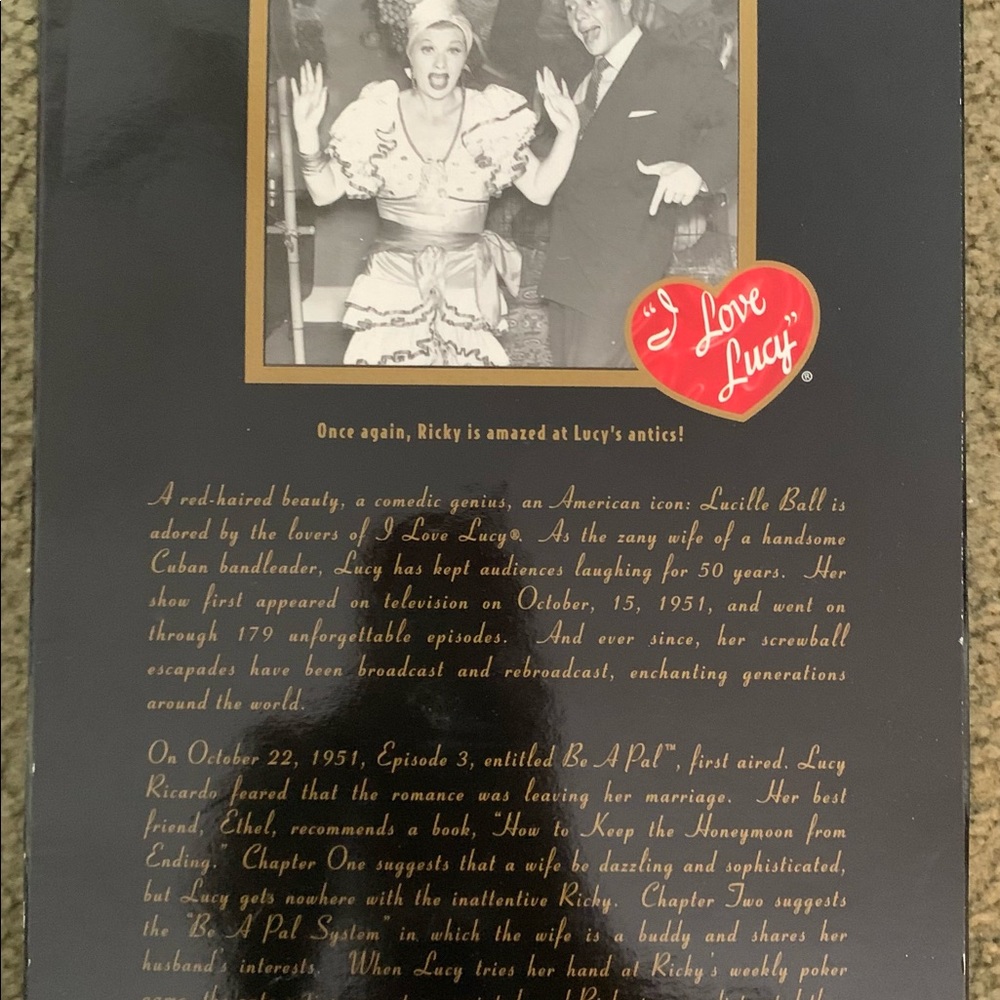 "I Love
Lucy"
®
Once again, Ricky is amazed at Lucy's antics!
A red-haired beauty, a comedic genius, an American icon: Lucille Ball is
adored by the lovers of I Love Lucy®. As the zany wife of a handsome
Cuban bandleader, Lucy has kept audiences laughing for 50 years. Her
show first appeared on television on October, 15, 1951, and went on
through 179 unforgettable episodes. And ever since, her screwball
escapades have been broadcast and rebroadcast, enchanting generations
around the world.
On October 22, 1951, Episode 3, entitled Be A Pal™, first aired. Lucy
Ricardo feared that the romance was leaving her marriage. Her best
friend, Ethel, recommends a book, "How to Keep the Honeymoon from
Ending." Chapter One suggests that a wife be dazzling and sophisticated,
but Lucy gets nowhere with the inattentive Ricky. Chapter Two suggests
the "Be A Pal System" in which the wife is a buddy and shares her
husband's interests. When Lucy tries her hand at Ricky's weekly poker